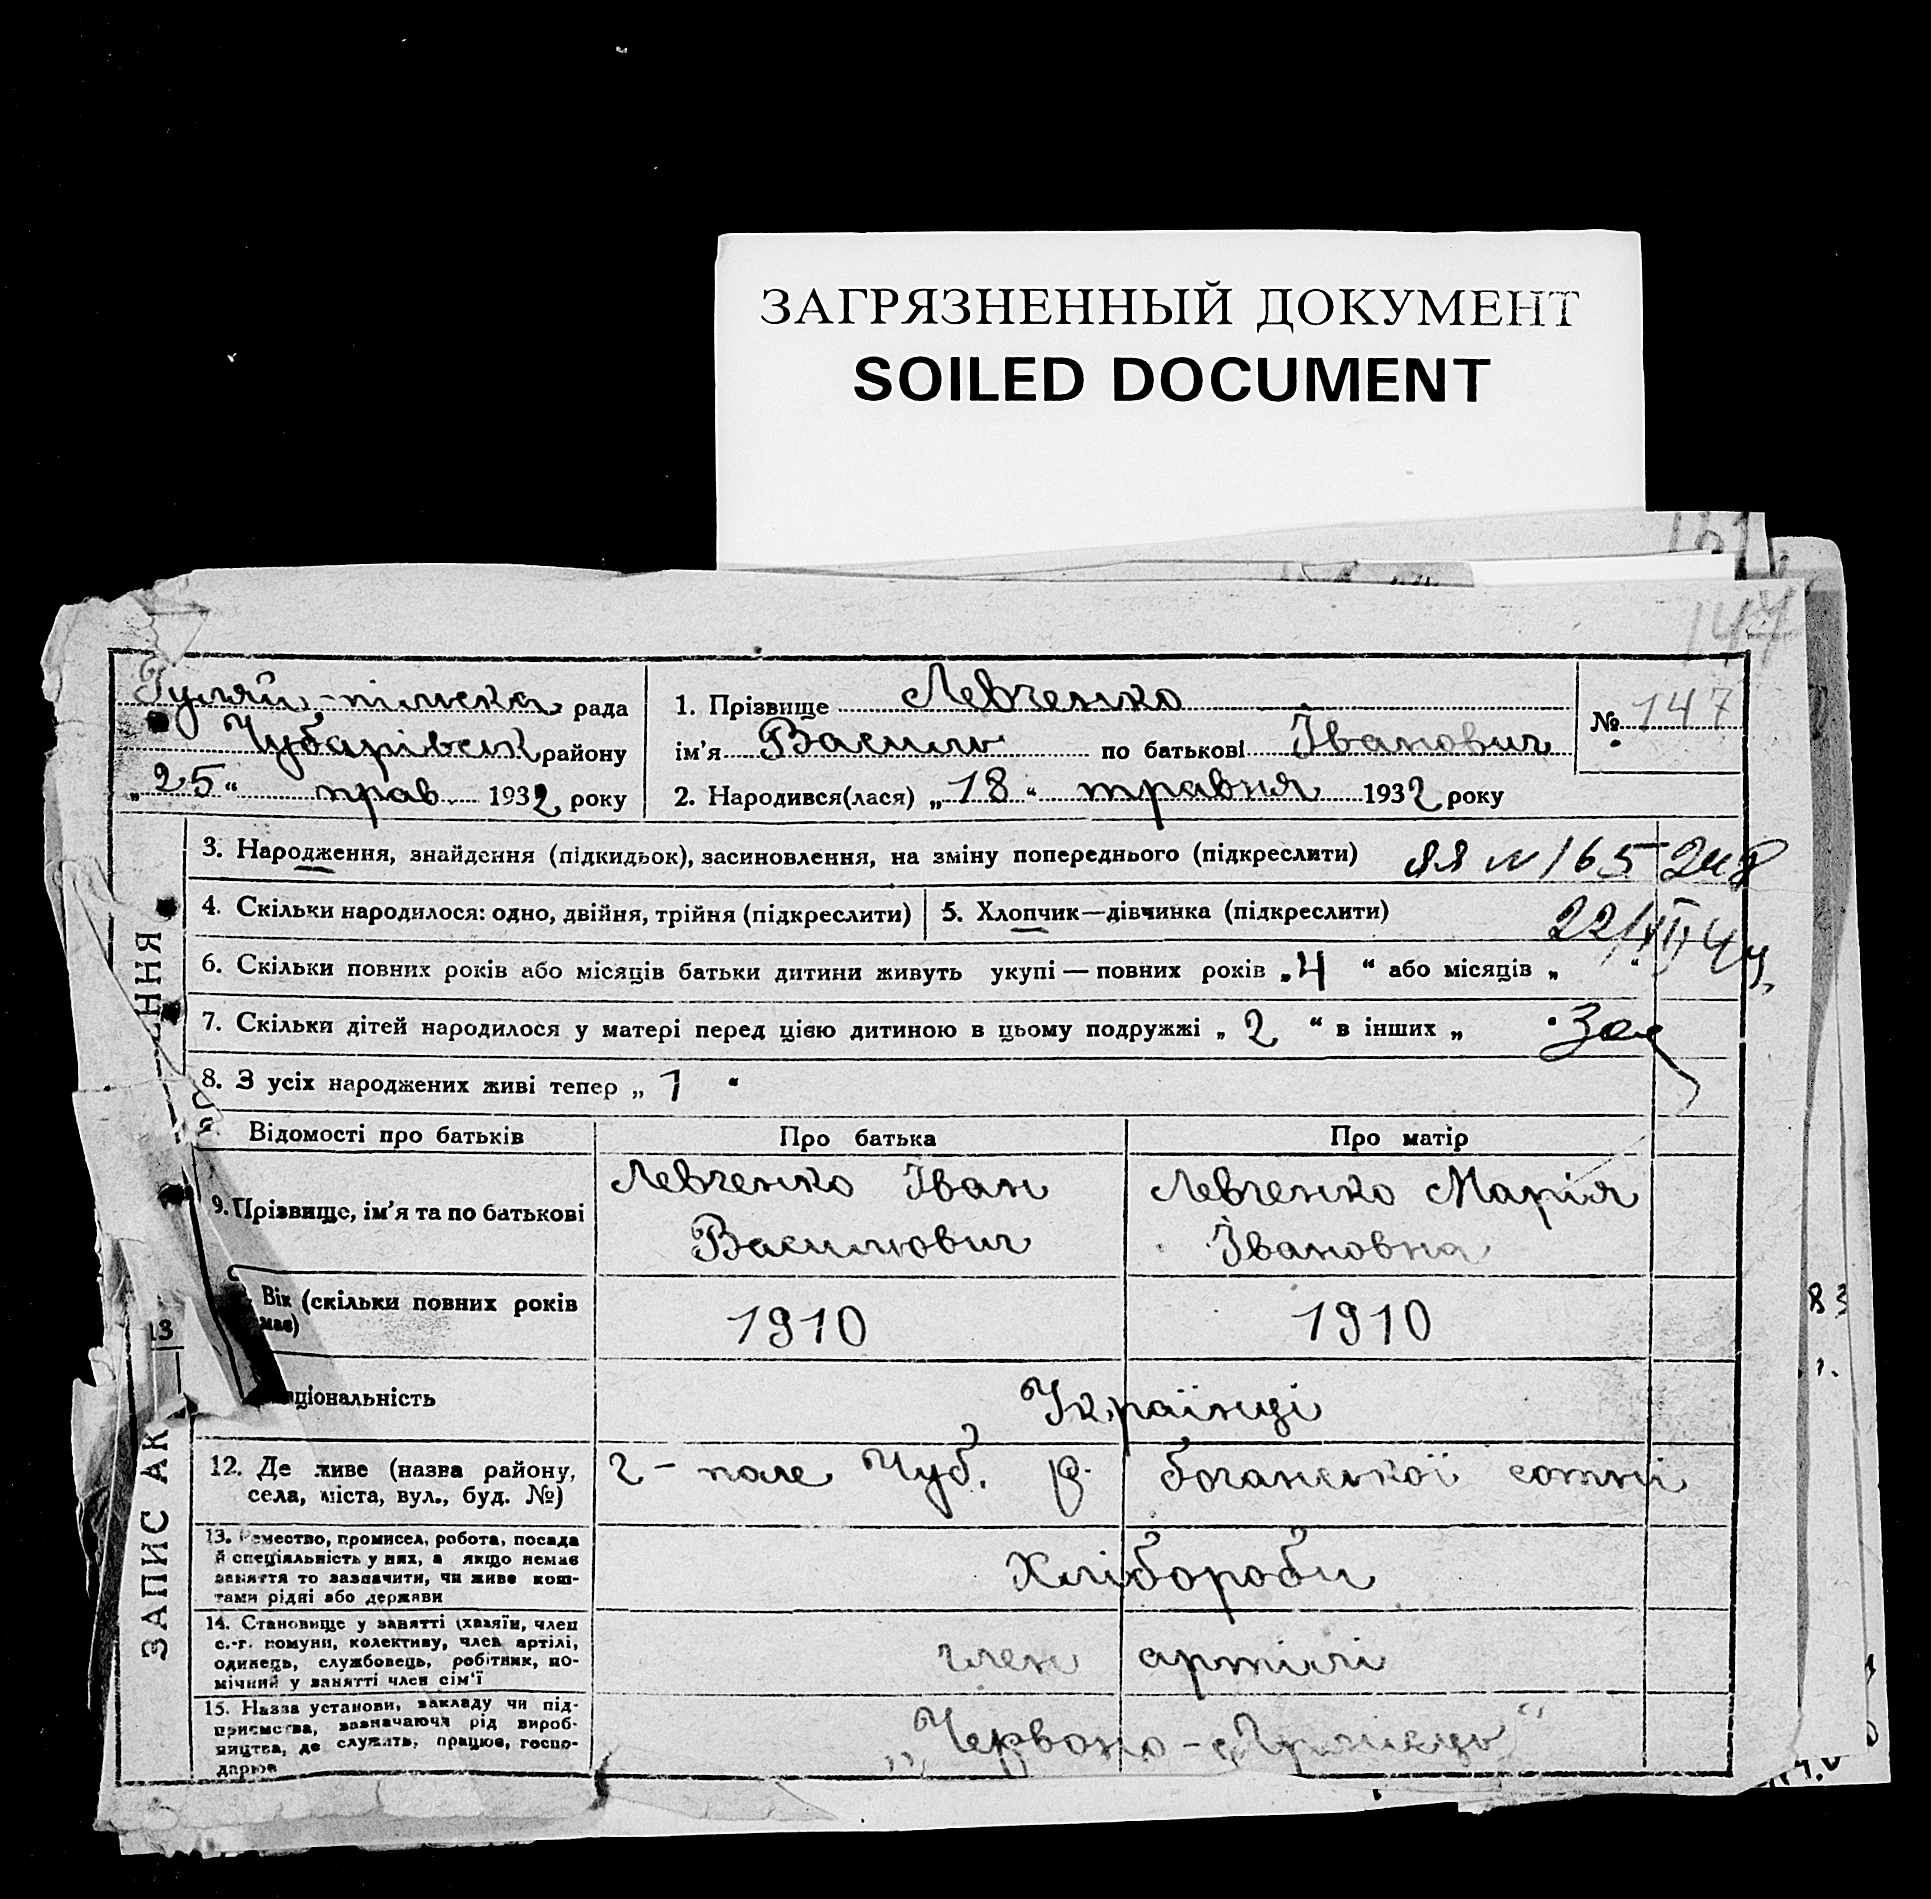 ЗАГРЯЗНЕННЫЙ ДОКУМЕНТ
SOILED DOCUMENT
147
Гуляй-пільска рада
Чубарівськ району
„25“ трав. 1932 року
1. Прізвище Левченко
ім’я Василь по батькові Іванович
№ 147
2. Народився(лася) „18“ травня 1932 року
3. Народження, знайдення (підкидьок), засиновлення, на зміну попереднього (підкреслити)
ЯЯ № 165248
4. Скільки народилося: одно, двійня, трійня (підкреслити)
5. Хлопчик—дівчинка (підкреслити)
6. Скільки повних років або місяців батьки дитини живуть укупі — повних років „4“ або місяців „ “
7. Скільки дітей народилося у матері перед цією дитиною в цьому подружжі „2“ в інших „
8. З усіх народжених живі тепер „1“
Відомості про батьків Про батька Про матір
9. Прізвище, ім’я та по батькові
Левченко Іван
Васильович
Левченко Марія
Івановна
Вік (скільки повних років
має)
1910 1910
ціональність
Українці
12. Де живе (назва району,
села, міста, вул., буд. №)
Г-поле Чуб. р. боганської сотні
13. Ремество, промисел, робота, посада
й спеціяльність у них, а якщо немає
заняття то зазначити, чи живе кош-
тами рідні або держави
Хлібороби
14. Становище у занятті (хазяїн, член
с.-г. комуни, колективу, член артілі,
одинець, службовець, робітник, по-
мічний у занятті член сім’ї
член артілі
15. Назва установи, закладу чи під-
приємства, зазначаючи рід вироб-
ництва, де служить, працює, госпо-
дарює
„Червоно-
ЗАПИС АК
ННЯ
13
83